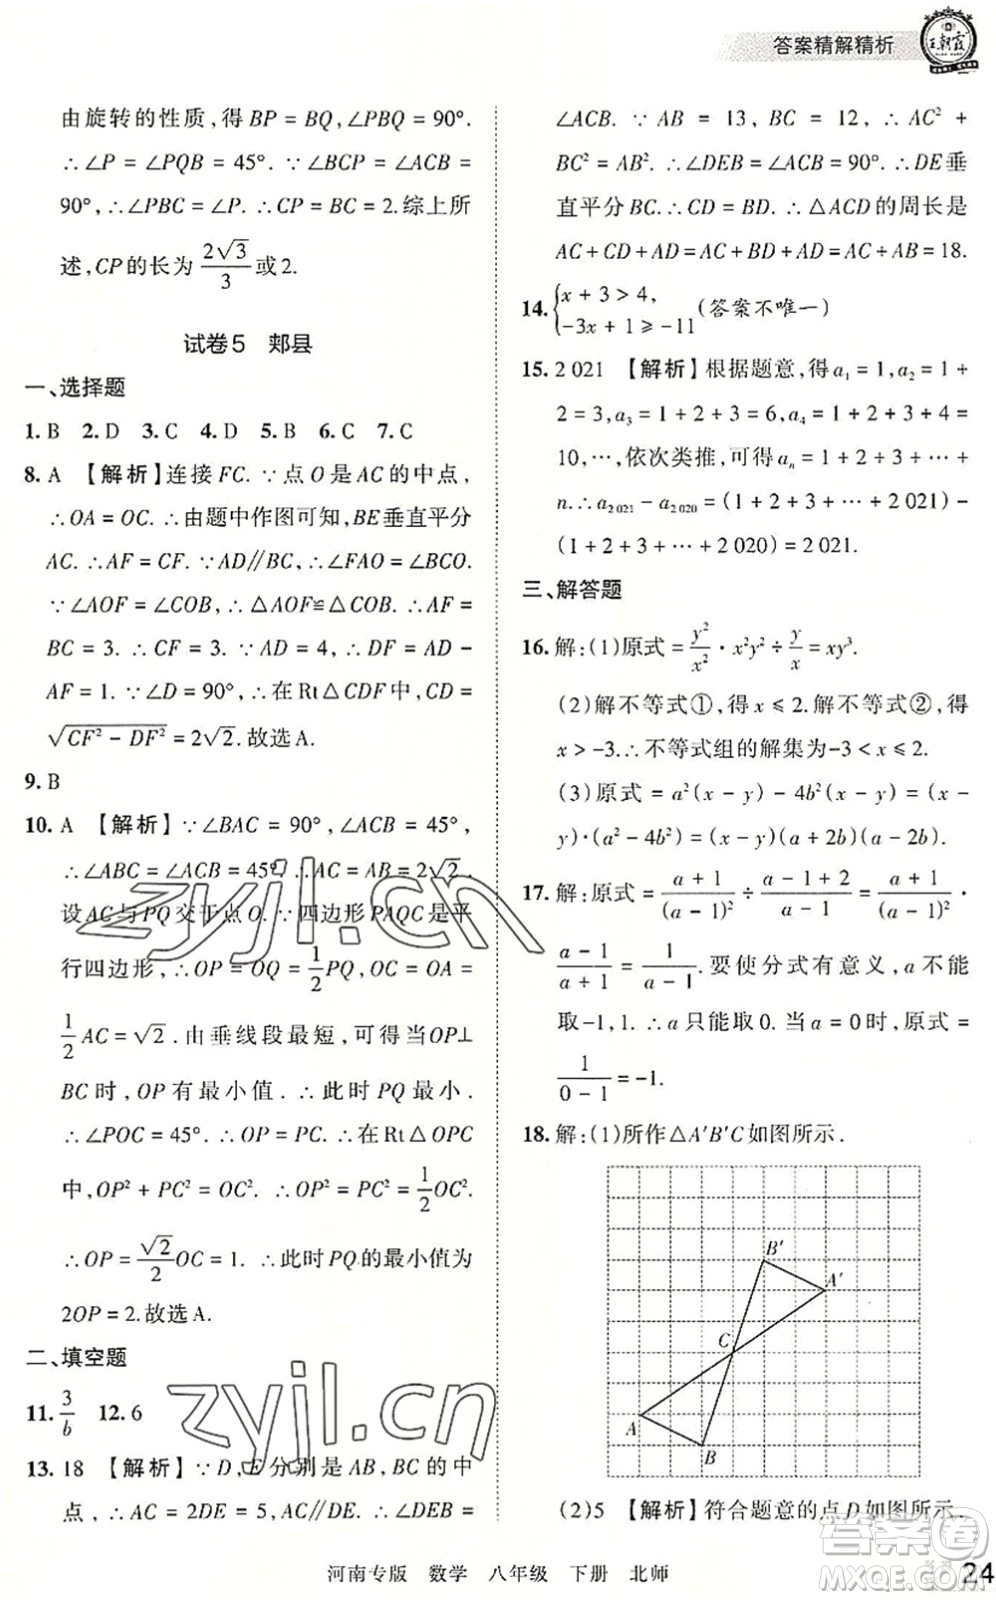 答案精解精析
王朝霞
由旋转的性质,得 BP = BQ,∠PBQ = 90°.
∴ ∠P = ∠PQB = 45°. ∵ ∠BCP = ∠ACB =
90°,∴ ∠PBC = ∠P. ∴ CP = BC = 2. 综上所
述,CP 的长为 2√3/3 或 2.
试卷5 郏县
一、选择题
1. B 2. D 3. C 4. D 5. B 6. C 7. C
8. A 【解析】连接 FC. ∵ 点 O 是 AC 的中点,
∴ OA = OC. ∴ 由题中作图可知,BE 垂直平分
AC. ∴ AF = CF. ∵ AD∥BC,∴ ∠FAO = ∠BCO.
∵ ∠AOF = ∠COB,∴ △AOF≌△COB. ∴ AF =
BC = 3. ∴ CF = 3. ∵ AD = 4,∴ DF = AD −
AF = 1. ∵ ∠D = 90°,∴ 在 Rt△CDF 中,CD =
√(CF² − DF²) = 2√2. 故选 A.
9. B
10. A 【解析】∵ ∠BAC = 90°,∠ACB = 45°,
∴ ∠ABC = ∠ACB = 45°. ∴ AC = AB = 2√2.
设 AC 与 PQ 交于点 O. ∵ 四边形 PAQC 是平
行四边形,∴ OP = OQ = 1/2 PQ,OC = OA =
1/2 AC = √2. 由垂线段最短,可得当 OP⊥
BC 时,OP 有最小值. ∴ 此时 PQ 最小.
∴ ∠POC = 45°. ∴ OP = PC. ∴ 在 Rt△OPC
中,OP² + PC² = OC². ∴ OP² = PC² = 1/2 OC².
∴ OP = √2/2 OC = 1. ∴ 此时 PQ 的最小值为
2OP = 2. 故选 A.
二、填空题
11. 3/b 12. 6
13. 18 【解析】∵ D,E 分别是 AB,BC 的中
点,∴ AC = 2DE = 5,AC∥DE. ∴ ∠DEB =
∠ACB. ∵ AB = 13,BC = 12,∴ AC² +
BC² = AB². ∴ ∠DEB = ∠ACB = 90°. ∴ DE 垂
直平分 BC. ∴ CD = BD. ∴ △ACD 的周长是
AC + CD + AD = AC + BD + AD = AC + AB = 18.
14. {x + 3 > 4, −3x + 1 ⩾ −11 (答案不唯一)
15. 2 021 【解析】根据题意,得 a₁ = 1,a₂ = 1 +
2 = 3,a₃ = 1 + 2 + 3 = 6,a₄ = 1 + 2 + 3 + 4 =
10,…,依次类推,可得 aₙ = 1 + 2 + 3 + … +
n. ∴ a₂₀₂₁ − a₂₀₂₀ = (1 + 2 + 3 + … + 2 021) −
(1 + 2 + 3 + … + 2 020) = 2 021.
三、解答题
16. 解:(1)原式 = y²/x² · x²y² ÷ y/x = xy³.
(2)解不等式①,得 x ⩽ 2. 解不等式②,得
x > −3. ∴ 不等式组的解集为 −3 < x ⩽ 2.
(3)原式 = a²(x − y) − 4b²(x − y) = (x −
y)·(a² − 4b²) = (x − y)(a + 2b)(a − 2b).
17. 解:原式 = (a + 1)/(a − 1)² ÷ (a − 1 + 2)/(a − 1) = (a + 1)/(a − 1)² ·
(a − 1)/(a + 1) = 1/(a − 1). 要使分式有意义,a 不能
取 −1,1. ∴ a 只能取 0. 当 a = 0 时,原式 =
1/(0 − 1) = −1.
18. 解:(1)所作△A′B′C 如图所示.
B′
A′
C
A
B
(2)5 【解析】符合题意的点 D 如图所示.
河南专版 数学 八年级 下册 北师
24
zyjl.cn
zyjl.cn
答案圈
MXQE.COM